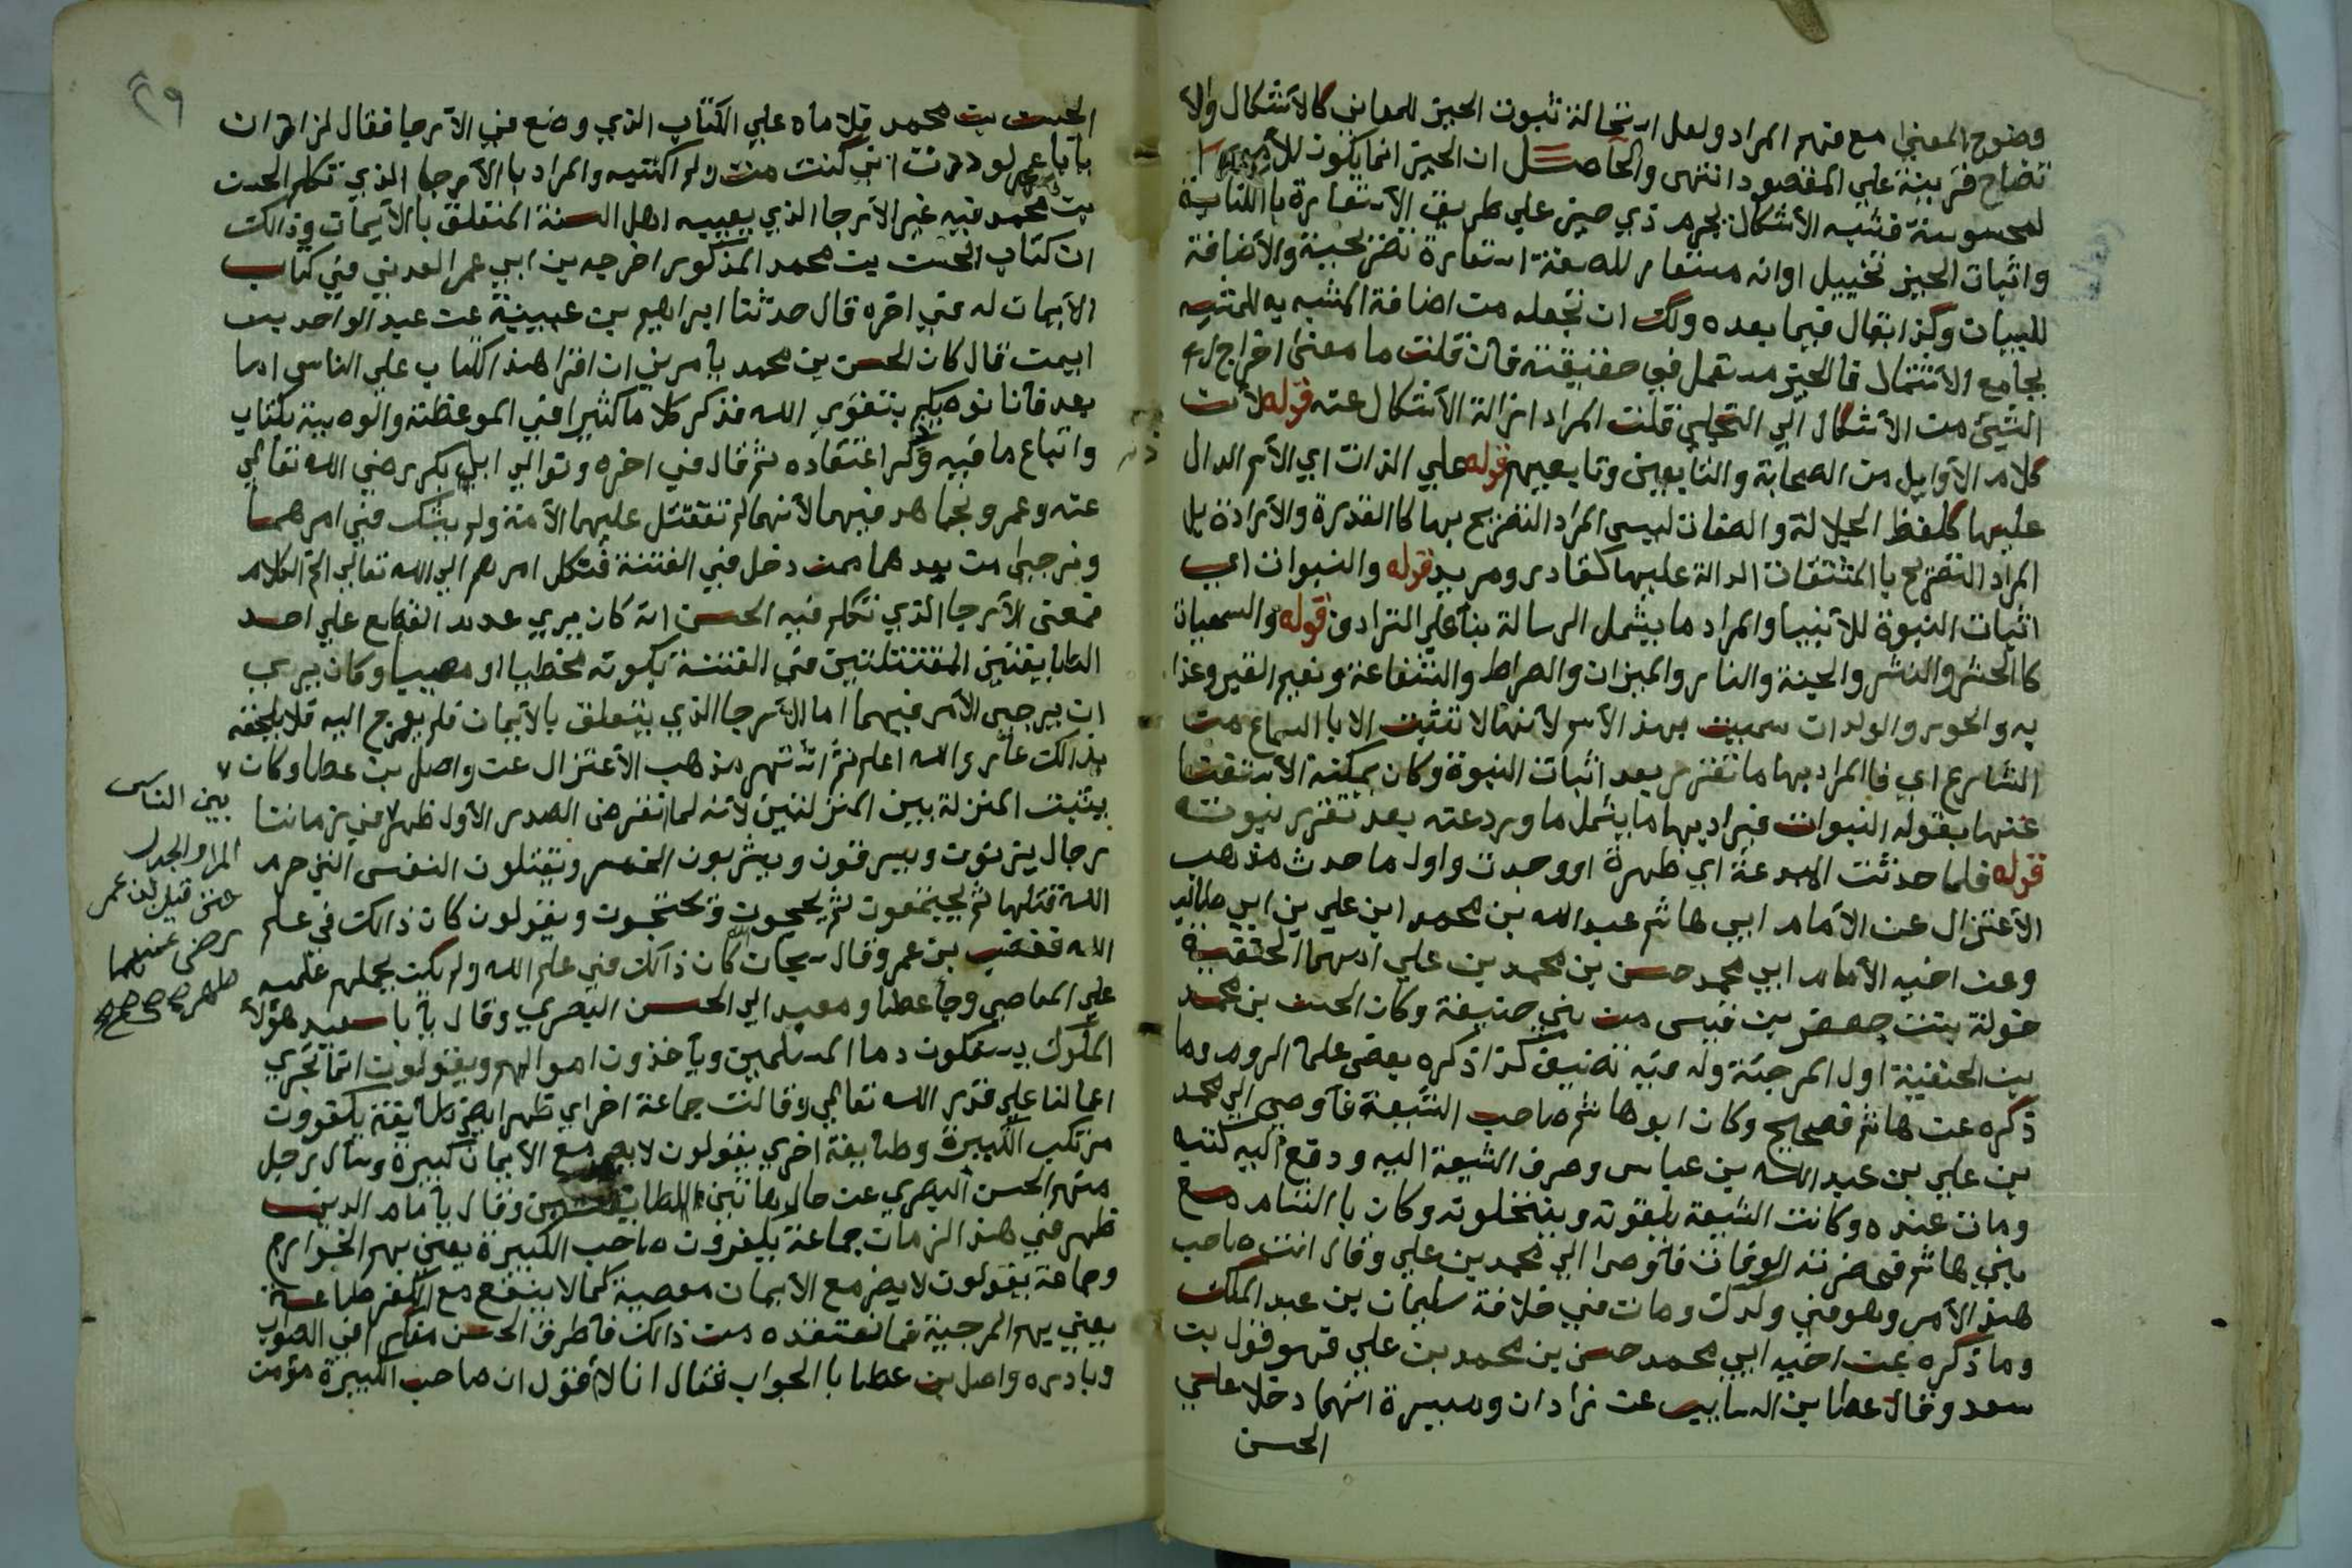 وضوح المعنى مع فهم المراد ولعل استحالة ثبوت الحيز للمعاني كالأشكال والأ
تضاح قرينة علي المقصود انتهى والحاصل ان الحيز انما يكون للأمور ا
لمحسوسة فشبه الأشكال بجرم ذي حيز علي طريق الأستعارة باالكناية
واثبات الحيز تخييل اوانه مستعار للصفة استعارة تصريحية والأضافة
للبيان وكذا يقال فيما بعده ولك ان تجعله من اضافة المشبه به للمشبه
بجامع الأشتمال فالحيز مستعمل في حقيقته فان قلت ما معنى اخراج
الشيئ من الأشكال الي التجلي قلت المراد ازالة الأشكال عنه قوله لأن
كلام الأوايل من الصحابة والتابعين وتابعيهم قوله علي الذات اي الأسم الدال
عليها كلفظ الجلالة والصفات ليس المراد التصريح بها كاالقدرة والأرادة بل
المراد التصريح باالمشتقات الدالة عليها كقادر ومريد قوله والنبوات اي
اثبات النبوة للأنبيا والمراد ما يشمل الرسالة بنأ علي الترادف قوله والسمعيات
كاالحشر والنشر والجنة والنار والميزان والصراط والشفاعة ونعيم القبر وعذا
به والحور والولدان سميت بهذ الأسم لأنها لا تثبت الا باالسماع من
الشارع اي فاالمراد بها ما تقرر بعد اثبات النبوة وكان يمكنه الأستغنا
عنها بقوله النبوات فيراد بها ما يشمل ما ورد عنه بعد تقرير نبوته
قوله فلما حدثت المبدعة اي ظهرة او وجدت واول ما حدث مذهب
الأعتزال عن الأمام ابي هاشم عبد الله بن محمد ابن علي بن ابي طالب
وعن اخيه الأمام ابي محمد حسن بن محمد بن علي امهما الحنفية
خولة بنت جعفر بن قيس من بني حنيفة وكان الحسن بن محمد
بن الحنفية اول المرجئة وله فيه تصنيف كذا ذكره بعض علما الروم وما
ذكره عن هاشم فصحيح وكان ابو هاشم صاحب الشيعة فأوصى الي محمد
بن علي بن عبد الله بن عباس وصرف الشيعة اليه ودفع اليه كتبه
ومات عنده وكانت الشيعة يلقونه وينتحلونه وكان باالشام مع
بني هاشم فحضرته الوفات فأوصا الي محمد بن علي وقال انت صاحب
هذ الأمر وهو في ولدك ومات في خلافة سليمان بن عبد الملك
وما ذكره عن اخيه ابي محمد حسن بن محمد بن علي فهو قول بن
سعد وقال عطا بن السايب عن زادان وميسرة انهما دخلا علي
الحسن
٢٩
الحسن بن محمد فلاماه علي الكتاب الذي وضع في الأرجا فقال لزاذان
يا با عمر لوددت اني كنت مت ولم اكتبه والمراد باالأرجا الذي تكلم الحسن
بن محمد فيه غير الأرجا الذي يعيبه اهل السنة المتعلق باالأيمان وذالك
ان كتاب الحسن بن محمد المذكور اخرجه بن ابي عمر العدني في كتاب
الأيمان له في اخره قال حدثنا ابراهيم بن عيينة عن عبد الواحد بن
ايمن قال كان الحسن بن محمد يأمرني ان اقرا هذ الكتاب علي الناس اما
بعد فأنا نوصيكم بتقوى الله فذكر كلاما كثيرا في الموعظة والوصية بكتاب
واتباع ما فيه وذكر اعتقاده ثم قال في اخره ونوالي ابي بكر رضي الله تعالي
عنه وعمر ونجاهد فيهما لأنهما لم تقتتل عليهما الأمة ولم يشك في امرهما
ونرجيئ من بعدهما ممن دخل في الفتنة فنكل امرهم الي الله تعالي الخ الكلام
فمعنى الأرجا الذي تكلم فيه الحسن انه كان يري عدم القطع علي احد
الطايفتين المقتتلتين في الفتنة بكونه مخطيا او مصيبا وكان يري
ان يرجيئ الأمر فيهما اما الأرجا الذي يتعلق باالأيمان فلم يعرج اليه فلا يلحقه
بذالك عار والله اعلم ثم اشتهر مذهب الأعتزال عن واصل بن عطا وكان
يثبت المنزلة بين المنزلتين لأنه لما انقرض الصدر الأول ظهر في زماننا
رجال يزنون ويسرقون ويشربون الخمر ويقتلون النفس التي حرم
الله قتلها ثم يجتمعون ثم يحجون ويقولون كان ذالك في علم
الله فغضب بن عمر وقال سبحان الله كان ذالك في علم الله ولم يكن يحملهم علمه
علي المعاصي وجأ عطا ومعبد الي الحسن البصري وقال يأبا سعيد هؤلأ
الملوك يسفكون دما المسلمين ويأخذون اموالهم ويقولون انما تجري
اعمالنا علي قدر الله تعالي وقالت جماعة اخراي ظهرا ايضا طايفة يكفرون
مرتكب الكبيرة وطايفة اخري يقولون لا يضر مع الأيمان كبيرة وسأل رجل
منهم الحسن البصري عن حال هاتين الطايفتين وقال يأمام الدين
ظهر في هذ الزمان جماعة يكفرون صاحب الكبيرة يعني بهم الخوارج
وجماعة يقولون لا يضر مع الأيمان معصية كما لا ينفع مع الكفر طاعة
يعني بهم المرجية فما نعتقده من ذالك فأطرق الحسن مفكرا في الصواب
وبادره واصل بن عطا باالجواب فقال انا لأ قول ان صاحب الكبيرة مؤمن
بين الناس
المرا والجدل
حتى قيل لابن عمر
رضي عنهما
ظهر صح صح صح